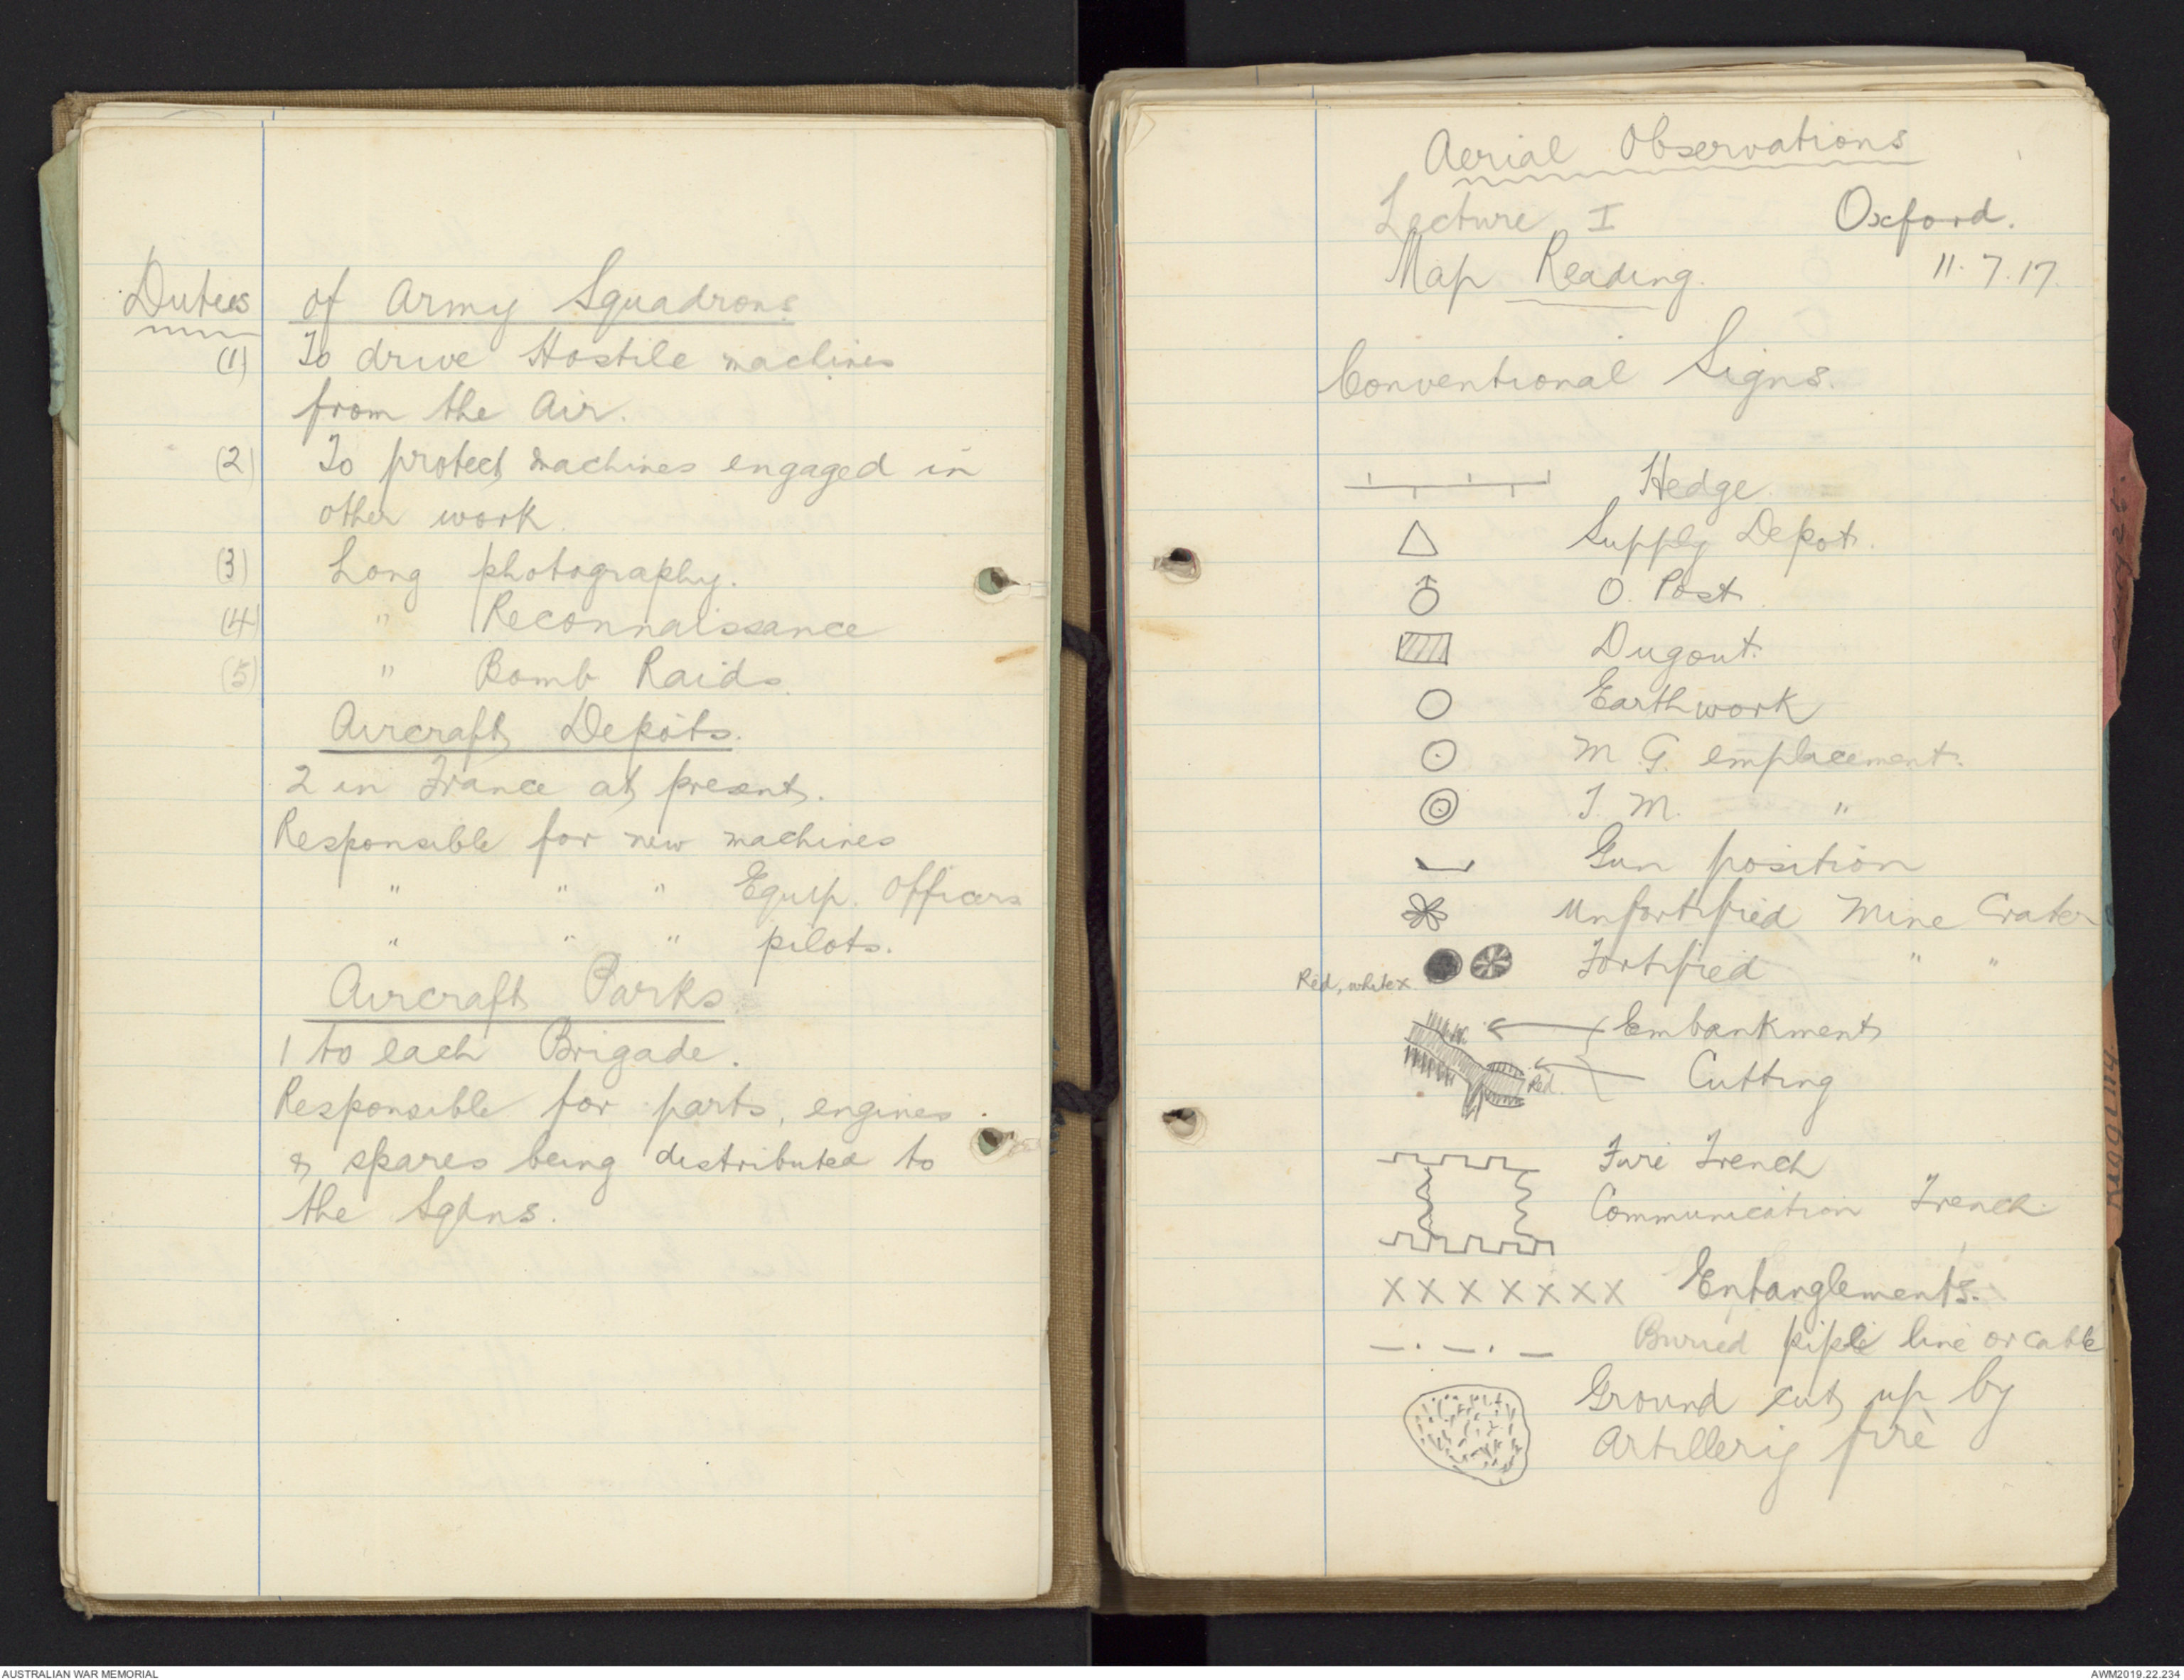 Duties of Army Squadrons
(1) To drive Hostile machines
from the Air.
(2) To protect machines engaged in
other work.
(3) Long photography.
(4) " Reconnaissance
(5) " Bomb Raids.
Aircraft Depôts.
2 in France at present.
Responsible for new machines
" " " Equip. Officers
" " " pilots.
Aircraft Parks
1 to each Brigade.
Responsible for parts, engines
& spares being distributed to
the Sqdns.
Aerial Observations
Lecture I Oxford.
Map Reading. 11.7.17.
Conventional Signs.
Hedge
Supply Depot.
O. Post
Dugout.
Earthwork
M. G. emplacement.
T. M. "
Gun position
Unfortified Mine Crater
Red, white x Fortified " "
Embankment
Red. Cutting
Fire Trench
Communication Trench.
x x x x x x x Entanglements.
Buried pipe line or cable
Ground cut up by
Artillery fire
Rigging
AUSTRALIAN WAR MEMORIAL
AWM2019.22.234